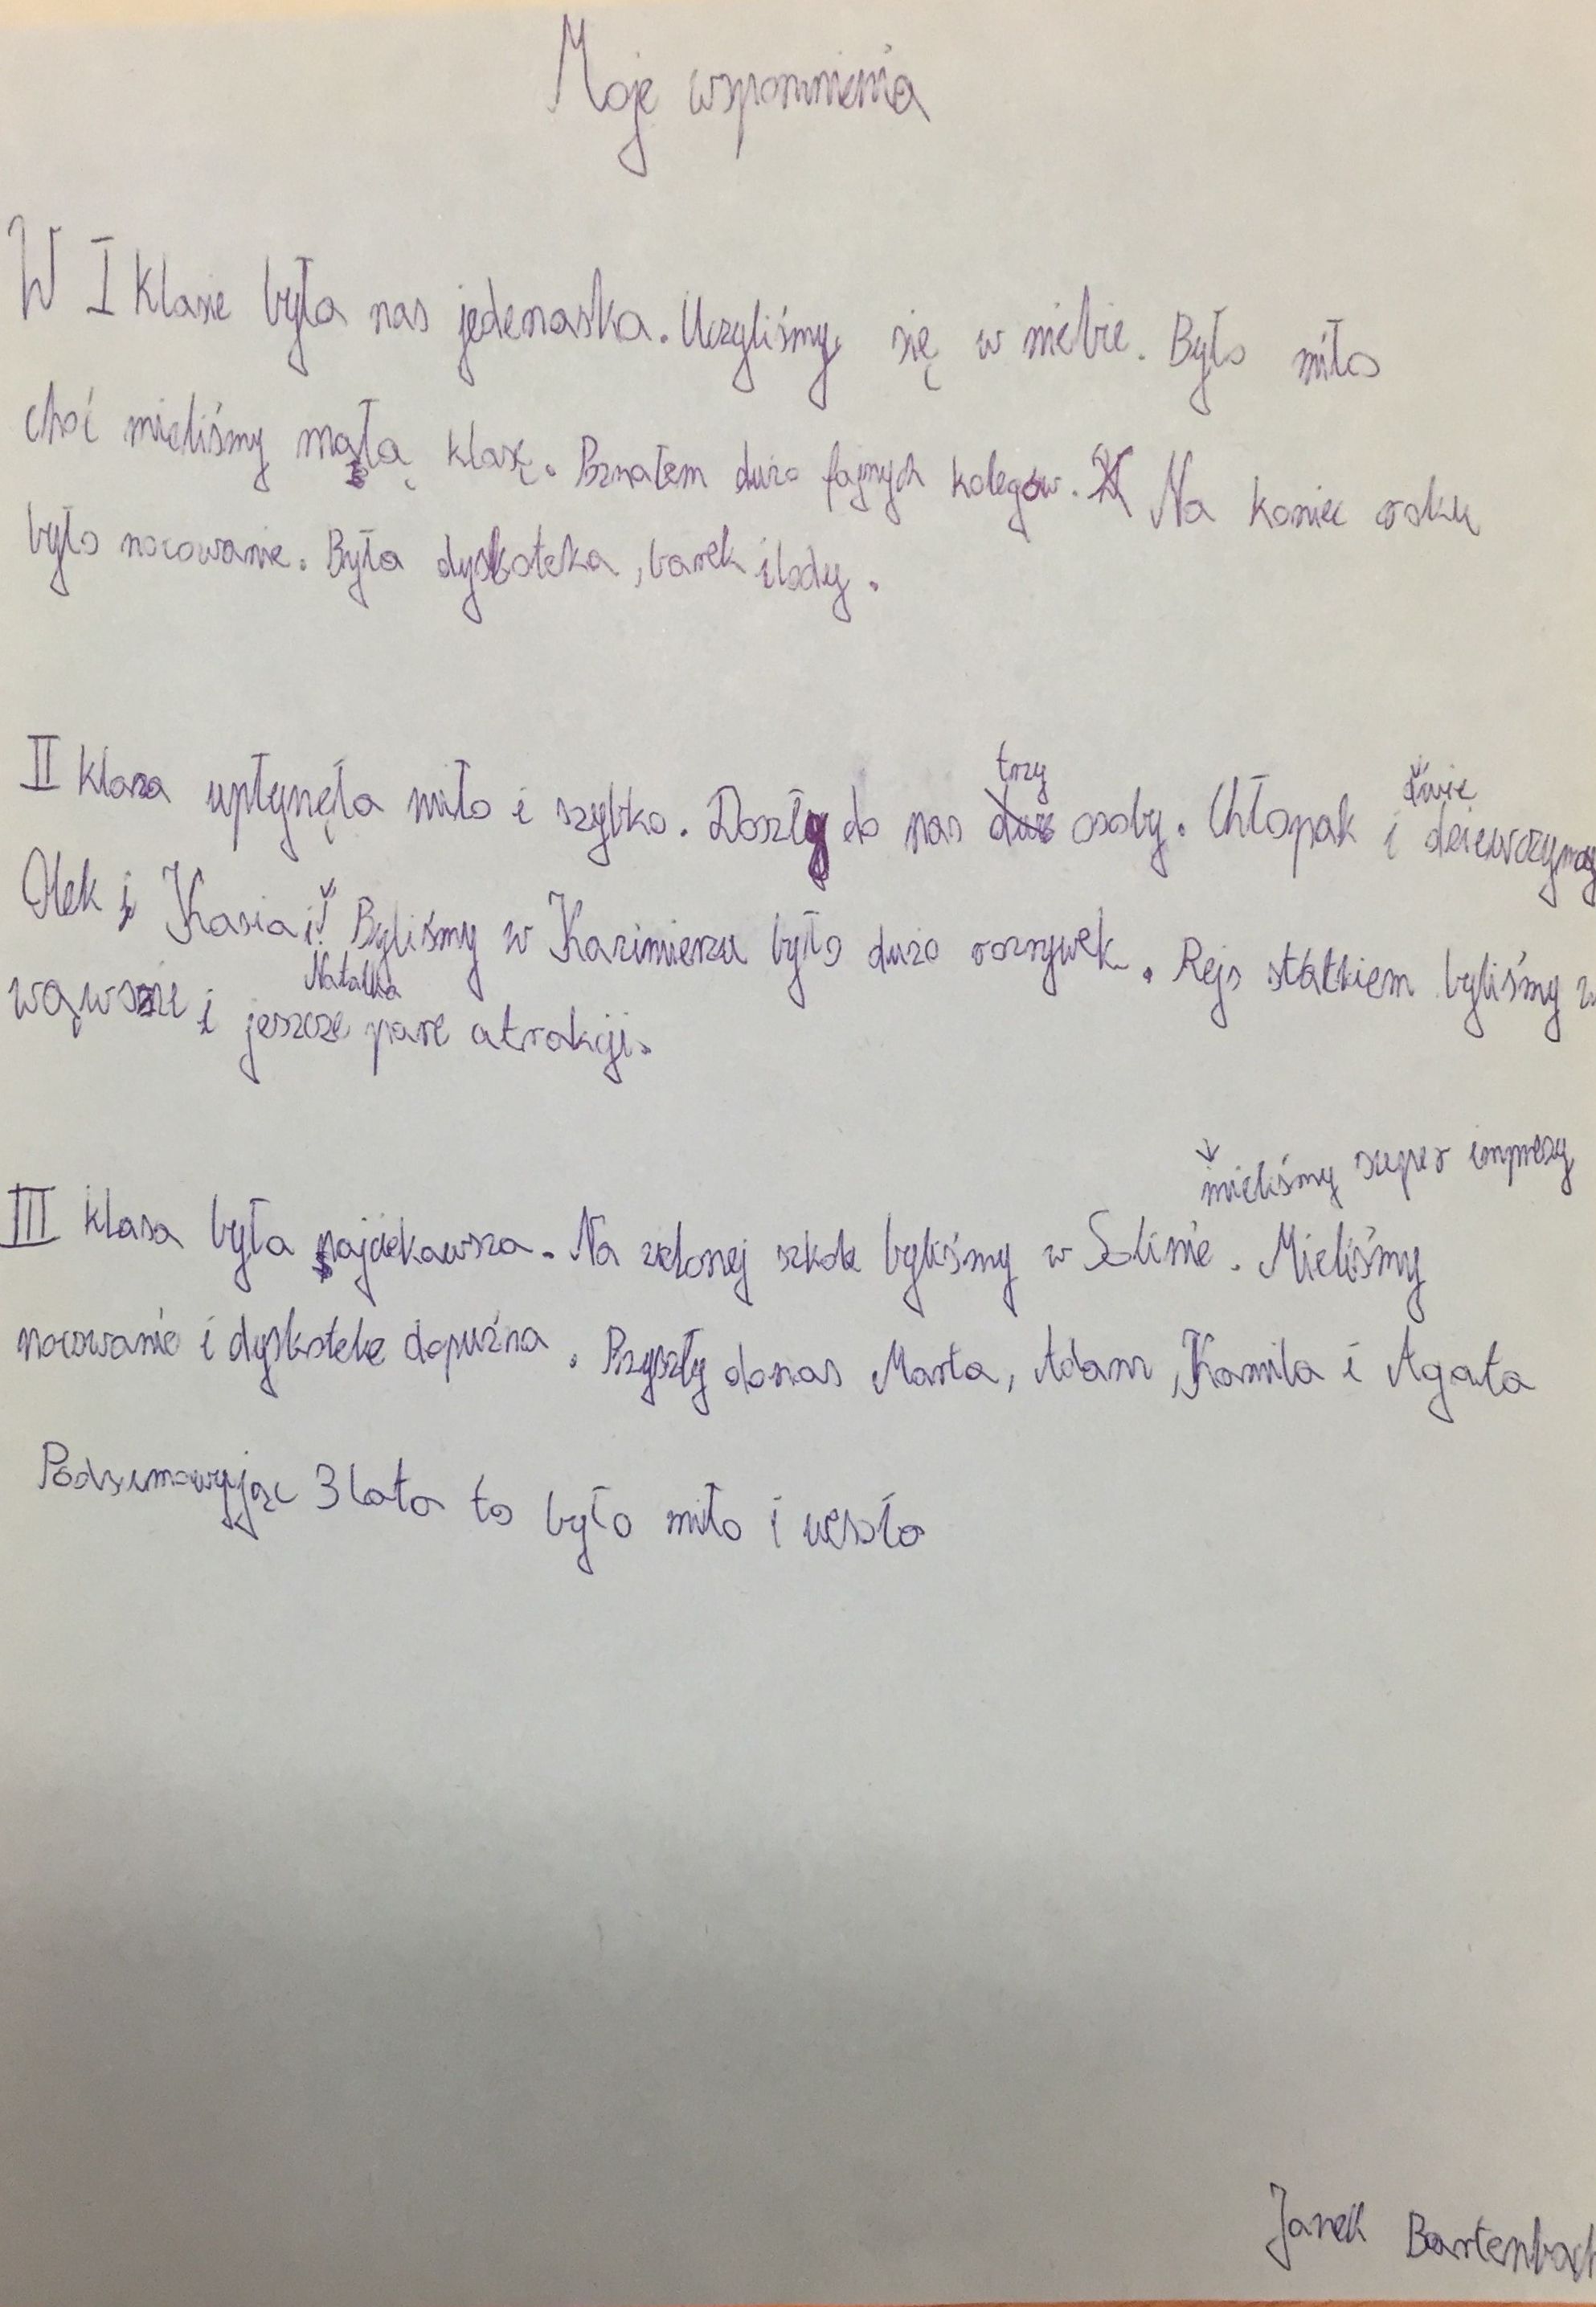 Moje wspomnienia
W I klasie była nas jedenastka. Uczyliśmy się w niebie. Było miło
choć mieliśmy małą klasę. Poznałem dużo fajnych kolegów. Na koniec roku
było nocowanie. Była dyskoteka, barek i lody.
II klasa upłynęła miło i szybko. Doszły do nas trzy osoby. Chłopak i dwie dziewczyny
Olek i Kasia i Natalka Byliśmy w Kazimierzu było dużo rozrywek. Rejs statkiem byliśmy w
wąwozie i jeszcze parę atrakcji.
mieliśmy super imprezy
III klasa była najciekawsza. Na zielonej szkole byliśmy w Solinie. Mieliśmy
nocowanie i dyskotekę dopuźna. Przyszły donas Marta, Adam, Kamila i Agata
Podsumowyjąc 3 lata to było miło i wesoło
Janek